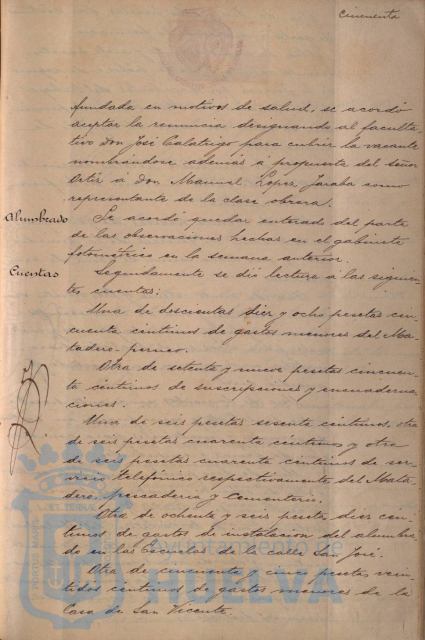 Cincuenta
fundada en motivos de salud, se acordó
aceptar la renuncia designando al faculta-
tivo Don José Calatrigo para cubrir la vacante
nombrándose además á propuesta del señor
Ortiz á Don Manuel Lopez Jaraba como
representante de la clase obrera.
Alumbrado
Se acordó quedar enterado del parte
de las observaciones hechas en el gabinete
fotométrico en la semana anterior.
Cuentas
Segundamente se dió lectura á las siguien-
tes cuentas:
Una de doscientas diez y ocho pesetas cin-
cuenta centimos de gastos menores del Ma-
tadero
Otra de setenta y nueve pesetas cincuen-
ta centimos de suscripciones y encuaderna-
ciones.
Una de seis pesetas sesenta centimos, otra
de seis pesetas cuarenta centimos y otra
de seis pesetas cuarenta centimos de ser-
vicio telefónico respectivamente del Mata-
dero, pescadería y Cementerio.
Otra de ochenta y seis pesetas diez cen-
timos de gastos de instalacion del alumbra-
do en las escuelas de la calle San José.
Otra de cincuenta y cinco pesetas vein-
tidos centimos de gastos menores de la
Casa de San Vicente.
HUELVA